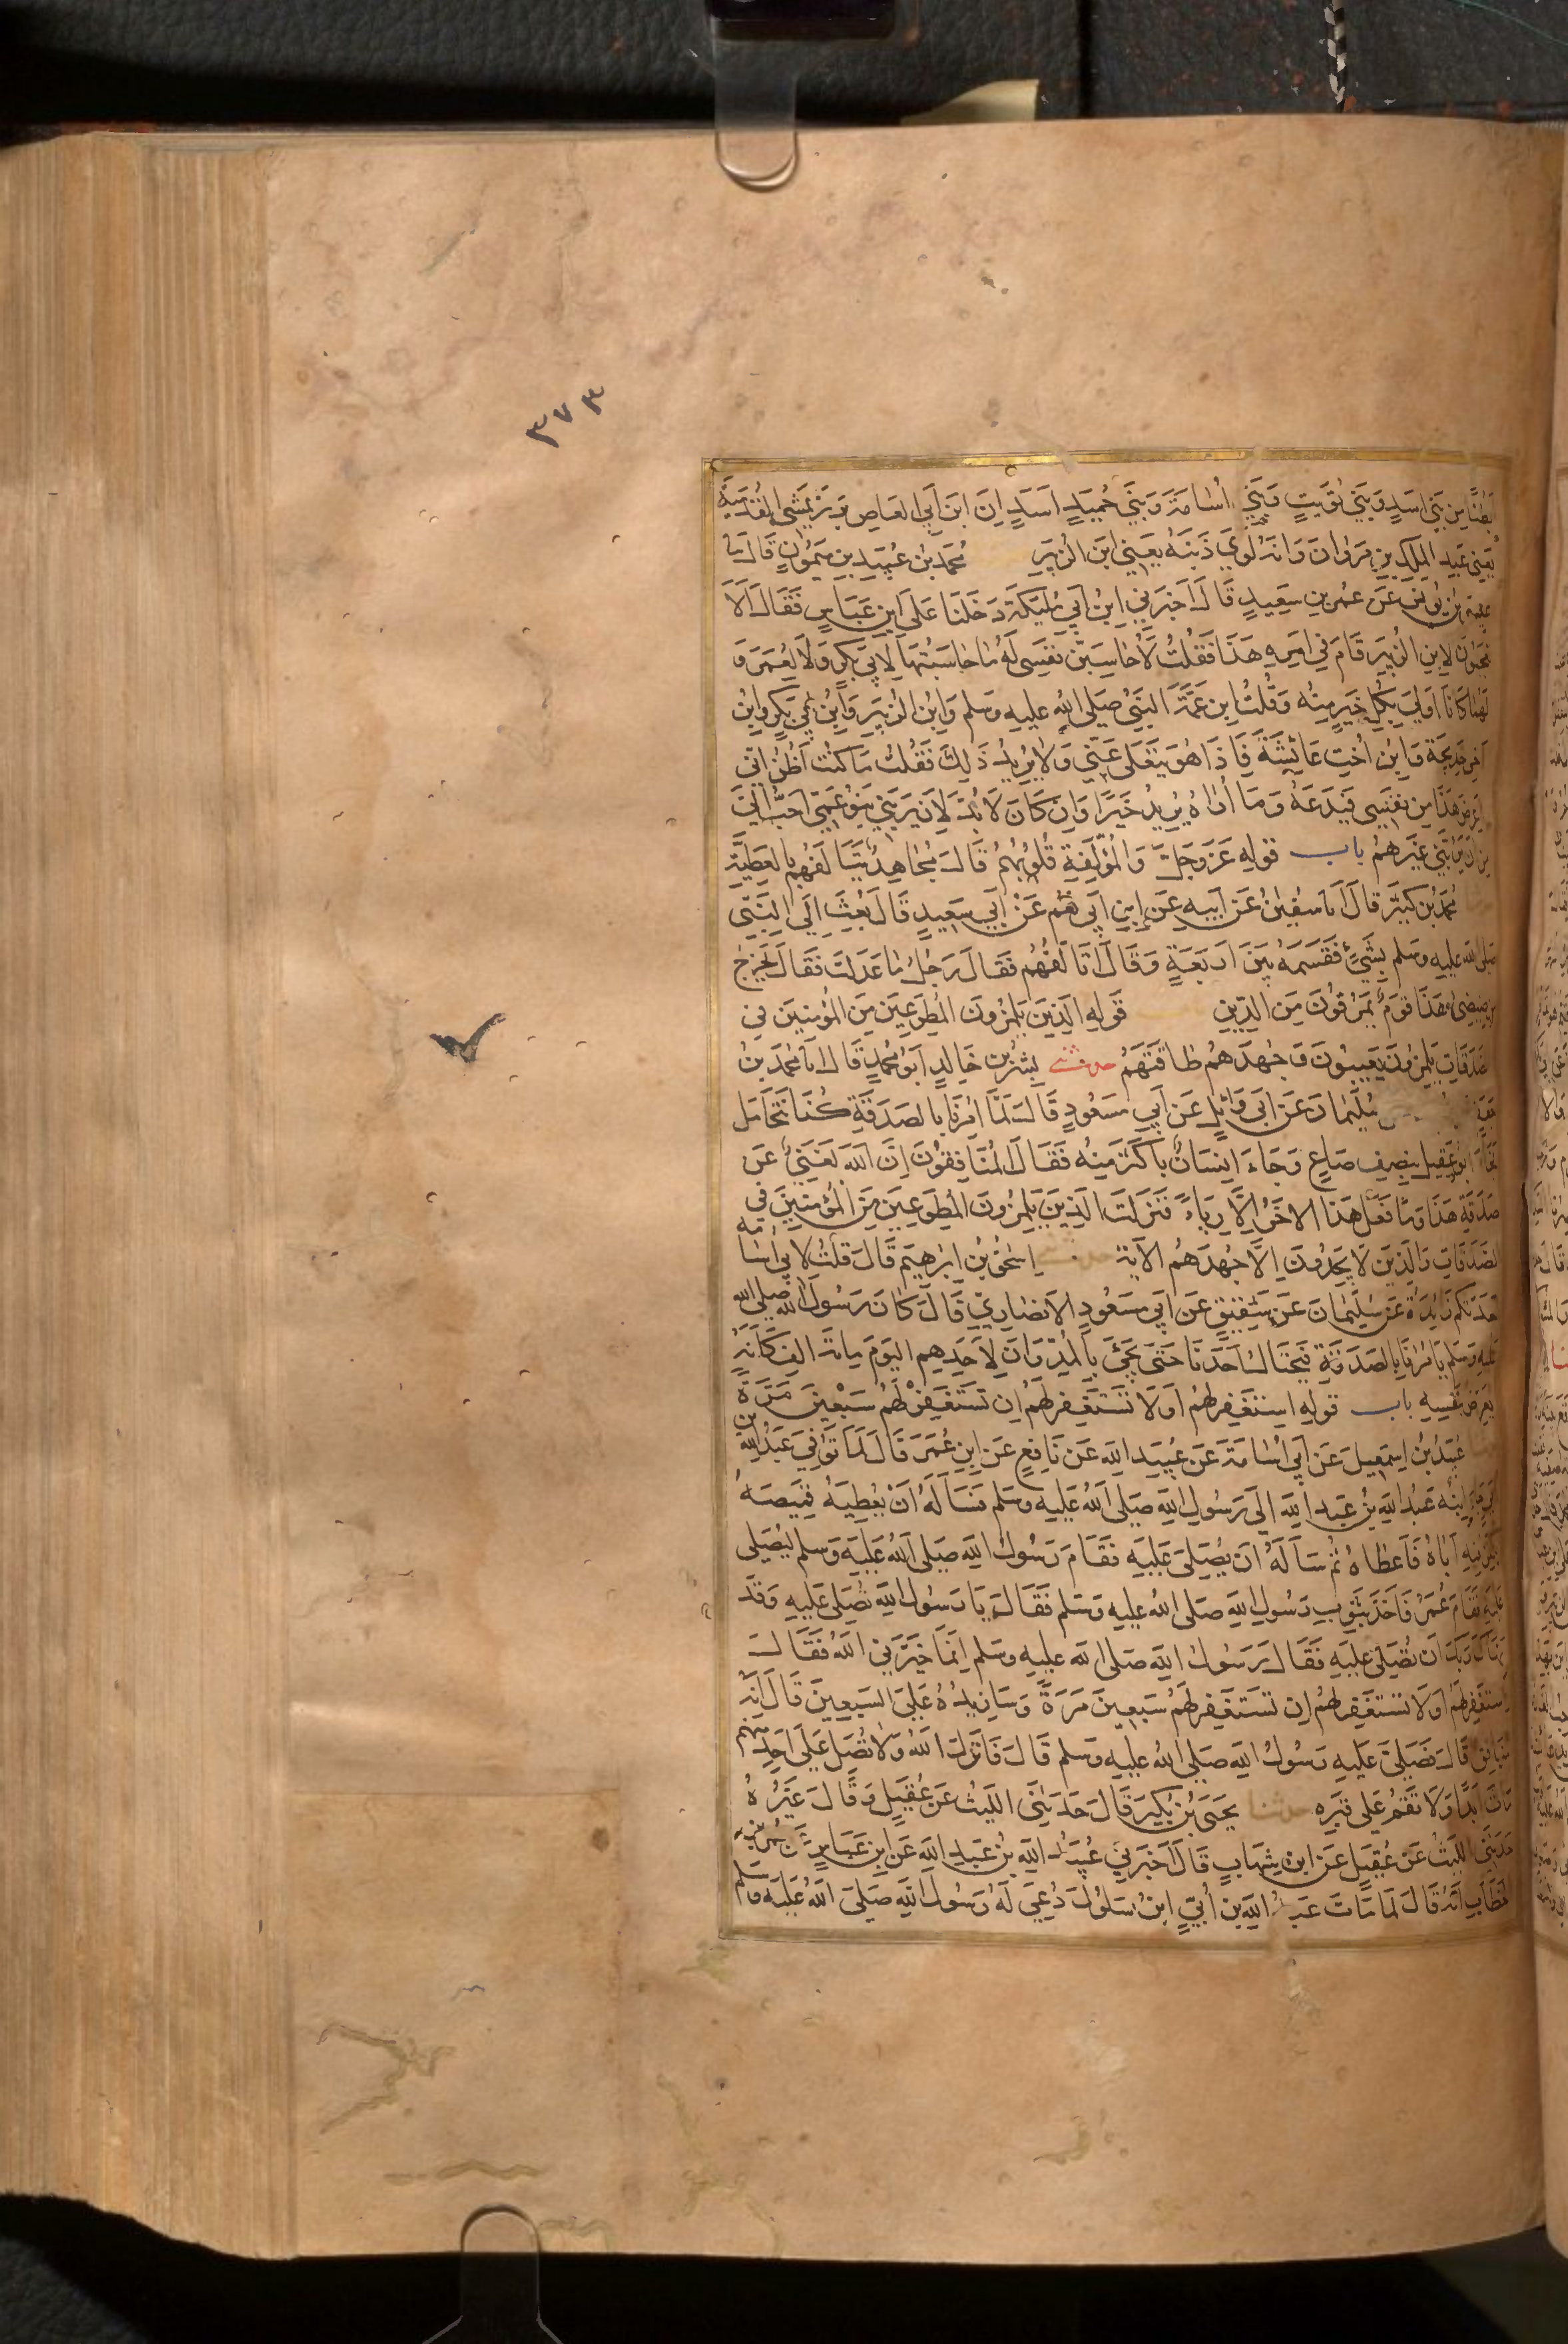 ٣٧٣
بَطْنًا مِن بَنِي اَسَدٍ وَبَنِي تُوَيتٍ وَبَنِي اُسَامَةَ وَبَنِي حُمَيدٍ اَسَدٍ اِنَّ ابنَ اَبِي العَاصِ بَرَزَ يَمشِي القُدَمِيَّة
يَعنِي عَبدَ المَلِكِ بنِ مَروَانَ وَانَّهُ لَوَّي ذَنَبَهُ يَعنِي ابنَ الزُّبَيرِ مُحَمَّدُ بنُ عُبَيدِ بنِ مَيمُونٍ قَالَ نَا
بنُ يُونُسَ عَن عُمَرَ بنِ سَعِيدٍ قَالَ اَخبَرَنِي ابنُ اَبِي مُلَيكَةَ دَخَلنَا عَلَى ابنِ عَبَّاسٍ فَقَالَ اَلَا
تَعجَبُونَ لِابنِ الزُّبَيرِ قَامَ فِي اَمرِهِ هَذَا فَقُلتُ لَاُحَاسِبَنَّ نَفسِي لَهُ مَا حَاسَبتُهَا لِاَبِي بَكرٍ وَلَا لِعُمَرَ وَ
لَهُمَا كَانَا اَولَى بِكُلِّ خَيرٍ مِنهُ وَقُلتُ ابنُ عَمَّةِ النَّبِيِّ صَلى الله عليه وسلم وَابنُ الزُّبَيرِ وَابنُ اَبِي بَكرٍ وَابنُ
اَخِي خَدِيجَةَ وَابنُ اُختِ عَائِشَةَ فَاِذَا هُوَ يَتَعَلَّى عَنِّي وَلَا يُرِيدُ ذَلِكَ فَقُلتُ مَا كُنتُ اَظُنُّ اَنِّي
اَعرِضُ هَذَا مِن نَفسِي فَيَدَعُهُ وَمَا اُرَاهُ يُرِيدُ خَيرًا وَاِن كَانَ لَا بُدَّ لَاَن يَرُبَّنِي بَنُو عَمِّي اَحَبُّ اِلَيَّ
مِن اَن يَرُبَّنِي غَيرُهُم باب قَولِهِ عَزَّ وَجَلَّ وَالمُؤَلَّفَةِ قُلُوبُهُم قَالَ مُجَاهِدٌ يَتَاَلَّفُهُم بِالعَطِيَّةِ
مُحَمَّدُ بنُ كَثِيرٍ قَالَ اَنَا سُفيَنُ عَن اَبِيهِ عَنِ ابنِ اَبِي نُعمٍ عَن اَبِي سَعِيدٍ قَالَ بُعِثَ اِلَى النَّبِيِّ
صلى الله عليه وسلم بِشَيءٍ فَقَسَمَهُ بَينَ اَربَعَةٍ وَقَالَ اَتَاَلَّفُهُم فَقَالَ رَجُلٌ مَا عَدَلتَ فَقَالَ يَخرُجُ
مِن ضِئضِئِ هَذَا قَومٌ يَمرُقُونَ مِنَ الدِّينِ قَولِهِ الَّذِينَ يَلمِزُونَ المُطَّوِّعِينَ مِنَ المُؤمِنِينَ فِي
الصَّدَقَاتِ يَلمِزُونَ يَعِيبُونَ وَجُهدَهُم طَاقَتَهُم حدثني بِشرُ بنُ خَالِدٍ اَبُو مُحَمَّدٍ قَالَ اَنَا مُحَمَّدُ بنُ
سُلَيمَانَ عَن اَبِي وَائِلٍ عَن اَبِي مَسعُودٍ قَالَ لَمَّا اُمِرنَا بِالصَّدَقَةِ كُنَّا نَتَحَامَلُ
فَجَاءَ اَبُو عَقِيلٍ بِنِصفِ صَاعٍ وَجَاءَ اِنسَانٌ بِاَكثَرَ مِنهُ فَقَالَ المُنَافِقُونَ اِنَّ اللهَ لَغَنِيٌّ عَن
صَدَقَةِ هَذَا وَمَا فَعَلَ هَذَا الاخَرُ اِلَّا رِيَاءً فَنَزَلَت الَّذِينَ يَلمِزُونَ المُطَّوِّعِينَ مِنَ المُؤمِنِينَ فِي
الصَّدَقَاتِ وَالَّذِينَ لَا يَجِدُونَ اِلَّا جُهدَهُم الايَةَ اِسحَقُ بنُ اِبرَهِيمَ قَالَ قُلتُ لِاَبِي اُسَامه
اَحَدَّثَكُم زَائِدَةُ عَن سُلَيمَانَ عَن شَقِيقٍ عَن اَبِي مَسعُودٍ الانصَارِيِّ قَالَ كَانَ رَسُولُ الله صلى الله
عليه وسلم يَامُرُنَا بِالصَّدَقَةِ فَيَحتَالُ اَحَدُنَا حَتَّى يَجِيءَ بِالمُدِّ وَاِنَّ لِاَحَدِهِم اليَومَ مِائَةَ الفٍ كَاَنَّهُ
يُعَرِّضُ بِنَفسِهِ باب قَولِهِ استَغفِر لَهُم اَو لَا تَستَغفِر لَهُم اِن تَستَغفِر لَهُم سَبعِينَ مَرَّةً
عُبَيدُ بنُ اِسمَعِيلَ عَن اَبِي اُسَامَةَ عَن عُبَيدِ اللهِ عَن نَافِعٍ عَنِ ابنِ عُمَرَ قَالَ لَمَّا تُوُفِّيَ عَبدُ اللهِ بن
اُبَيٍّ جَاءَ ابنُهُ عَبدُ اللهِ بنُ عَبدِ اللهِ اِلَى رَسُولِ اللهِ صَلَى اللهُ عَلَيهِ وسلم فَسَاَلَهُ اَن يُعطِيَهُ قَمِيصَهُ
يُكَفِّنُ فِيهِ اَبَاهُ فَاَعطَاهُ ثُمَّ سَاَلَهُ اَن يُصَلِّيَ عَلَيهِ فَقَامَ رَسُولُ اللهِ صَلَى اللهُ عَلَيهِ وَسلم لِيُصَلِّيَ
عَلَيهِ فَقَامَ عُمَرُ فَاَخَذَ بِثَوبِ رَسُولِ اللهِ صلى اللهُ عليه وَسَلم فَقَالَ يَا رَسُولَ اللهِ تُصَلِّي عَلَيهِ وَقَد
نَهَاكَ رَبُّكَ اَن تُصَلِّيَ عَلَيهِ فَقَالَ رَسُولُ اللهِ صَلى الله عليهِ وسلم اِنَّمَا خَيَّرَنِي اللهُ فَقَالَ
استَغفِر لَهُم اَو لَا تَستَغفِر لَهُم اِن تَستَغفِر لَهُم سَبعِينَ مَرَّةً وَسَاَزِيدُهُ عَلَى السَّبعِينَ قَالَ اِنَّهُ
مُنَافِقٌ قَالَ فَصَلَّى عَلَيهِ رَسُولُ اللهِ صَلى اللهُ عليه وسلم قَالَ فَاَنزَلَ اللهُ وَلَا تُصَلِّ عَلَى اَحَدٍ منهم
مَاتَ اَبَدًا وَلَا تَقُم عَلَى قَبرِهِ حدثنا يَحيَى بنُ بُكَيرٍ قَالَ حَدَّثَنِي اللَّيثُ عَن عُقَيلٍ وَقَالَ غَيرُهُ
حَدَّثَنِي اللَّيثُ عَن عُقَيلٍ عَنِ ابنِ شِهَابٍ قَالَ اَخبَرَنِي عُبَيدُ اللهِ بنُ عَبدِ اللهِ عَنِ ابنِ عَبَّاسٍ عَن عُمَرَ بن
الخَطَّابِ اَنَّهُ قَالَ لَمَّا مَاتَ عَبدُ اللهِ بنُ اُبَيٍّ ابنُ سَلُولَ دُعِيَ لَهُ رَسُولُ اللهِ صَلَى اللهُ عَلَيهِ وسلم